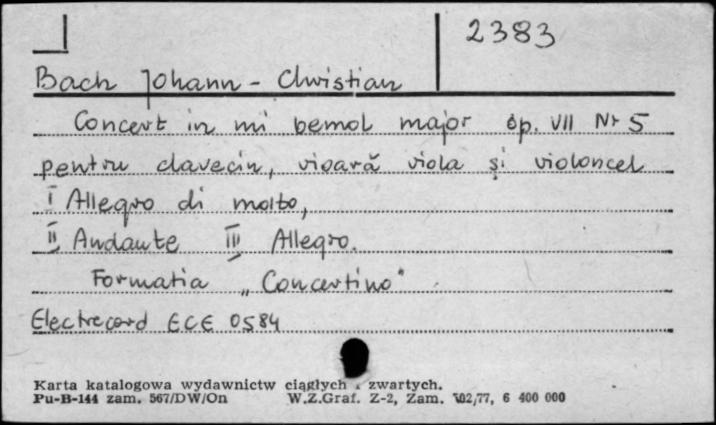 2383
Bach Johann - Christian
Concert in mi bemol major op. VII Nr 5
pentru clavecin, vioară viola și violoncel
I Allegro di molto,
II Andante III Allegro.
Formatia „Concertino"
Electrecord ECE 0584
Karta katalogowa wydawnictw ciągłych i zwartych.
Pu-B-144 zam. 567/DW/On W.Z.Graf. Z-2, Zam. 102/77, 6 400 000